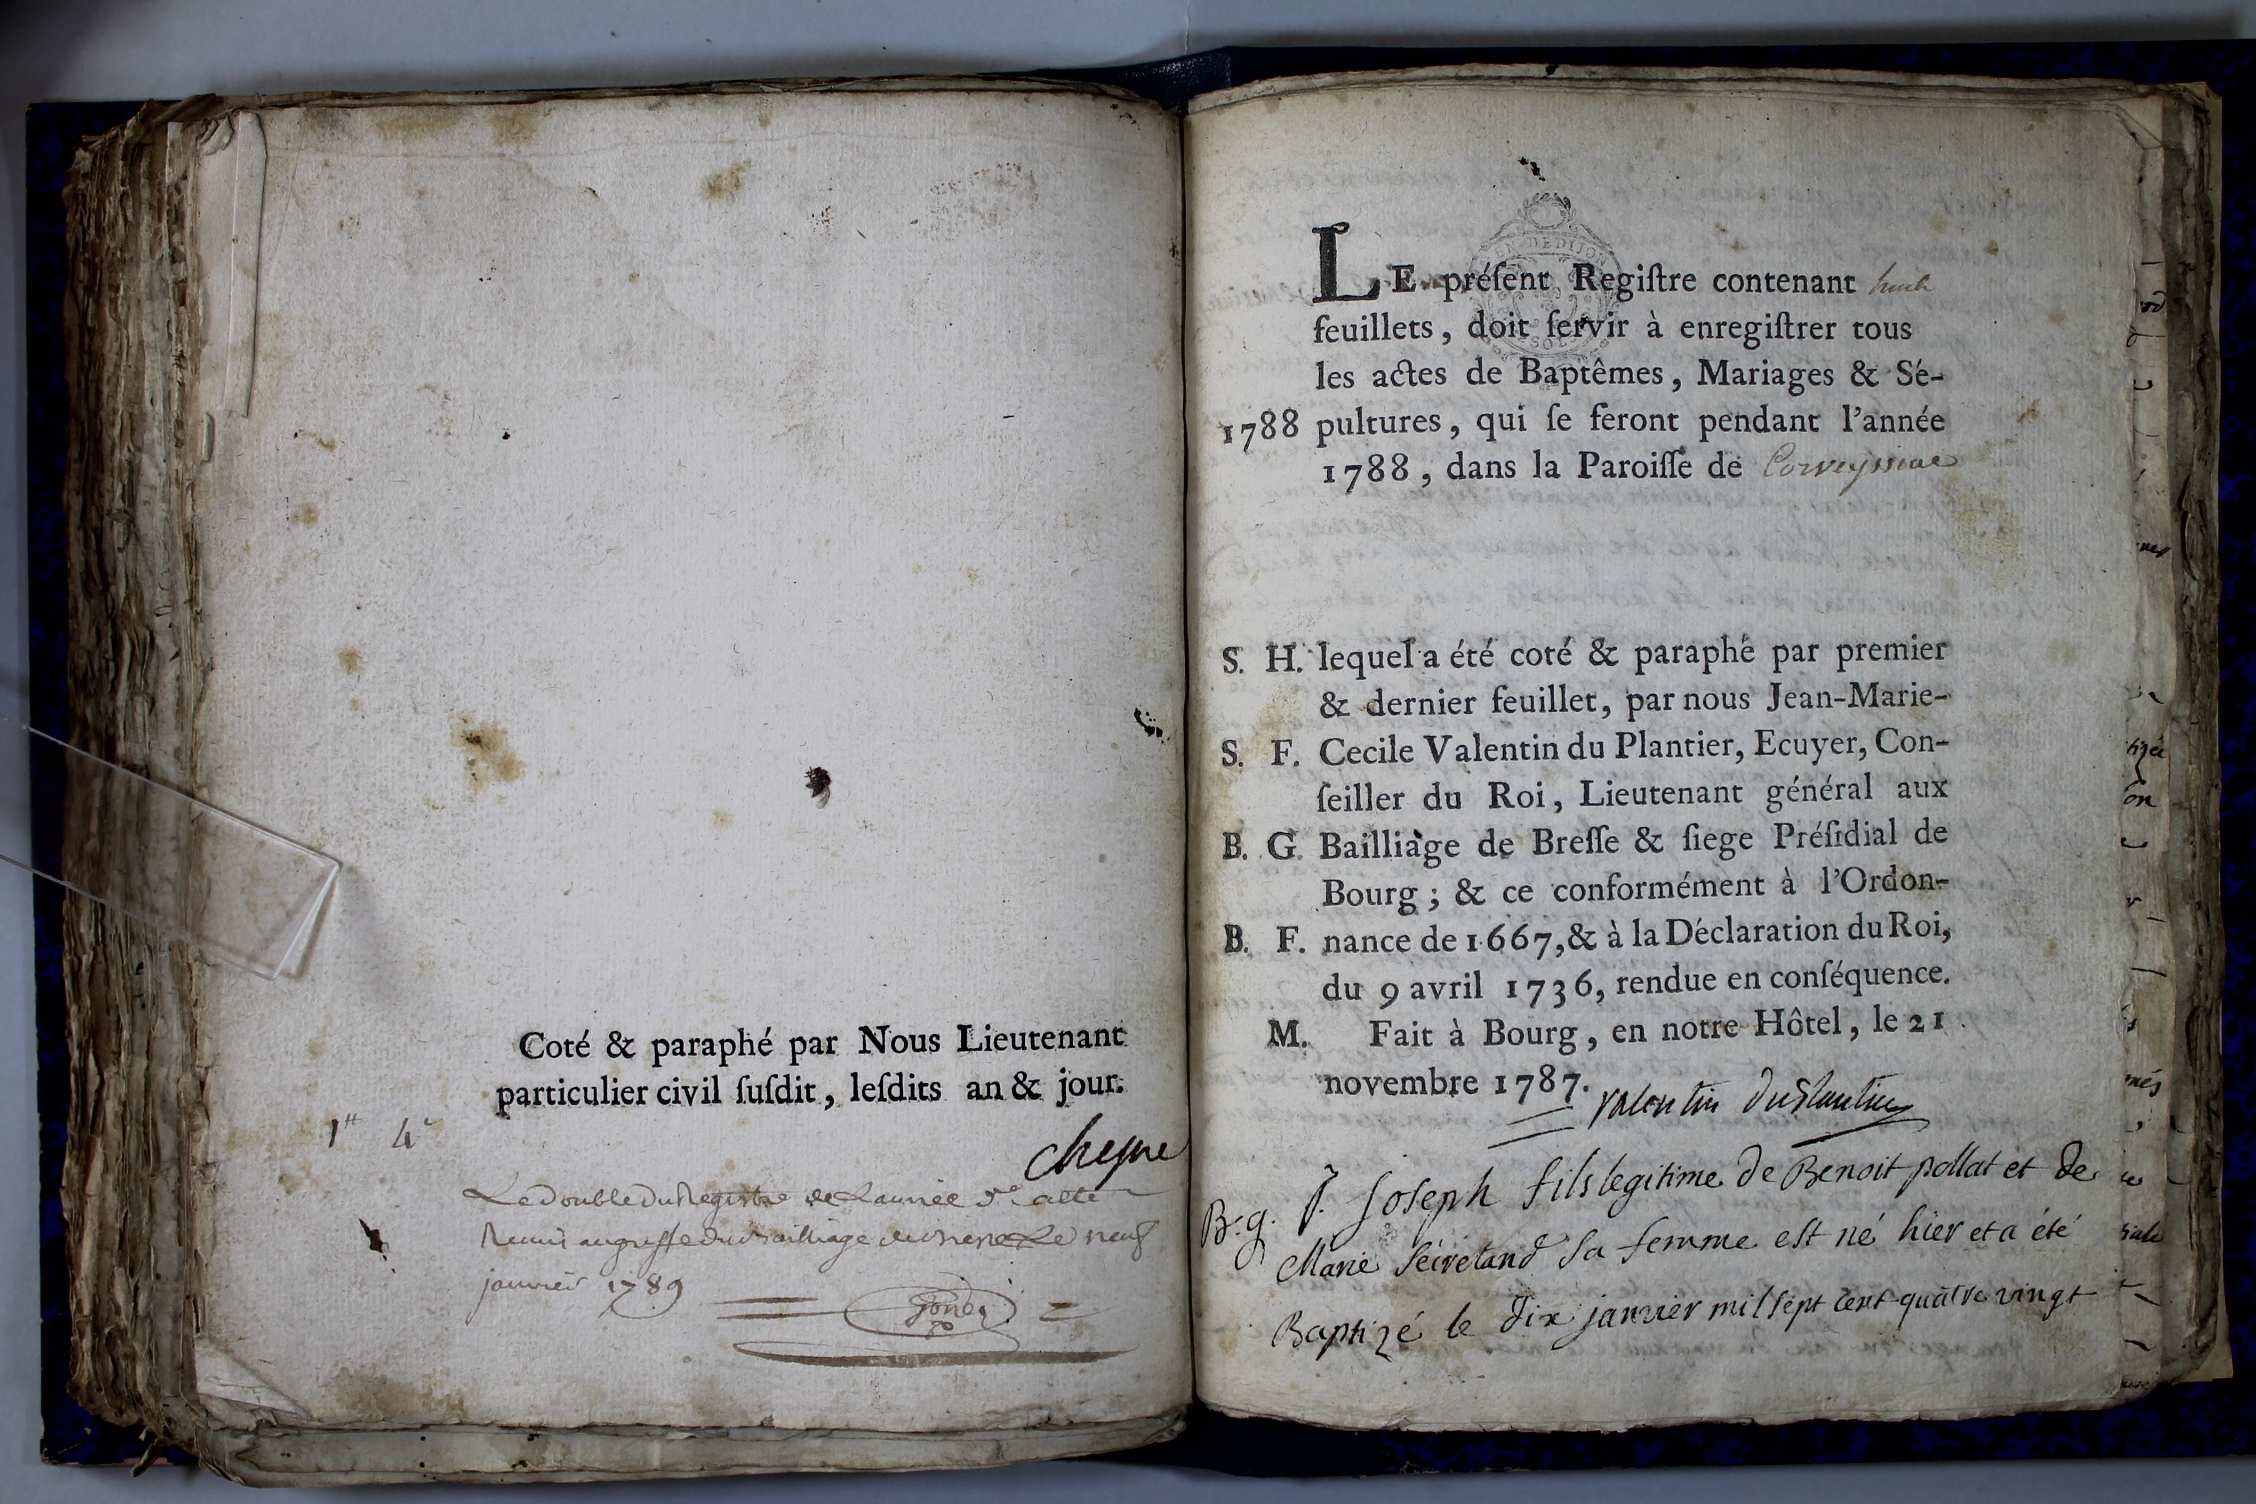 Coté & paraphé par Nous Lieutenant
particulier civil ſuſdit, leſdits an & jour.
1# 4ᶜ
Cheyne
Le double du Registre de L'année
Remis au greffe du Bailliage de Bresse Le neuf
janvier 1789
LE préſent Regiſtre contenant huit
feuillets, doit ſervir à enregiſtrer tous
les actes de Baptêmes, Mariages & Sé-
1788 pultures, qui ſe feront pendant l'année
1788, dans la Paroiſſe de Corveyssiac
S. H. lequel a été coté & paraphé par premier
& dernier feuillet, par nous Jean-Marie-
S. F. Cecile Valentin du Plantier, Ecuyer, Con-
ſeiller du Roi, Lieutenant général aux
B. G. Bailliage de Breſſe & ſiege Préſidial de
Bourg ; & ce conformément à l'Ordon-
B. F. nance de 1667, & à la Déclaration du Roi,
du 9 avril 1736, rendue en conſéquence.
M. Fait à Bourg, en notre Hôtel, le 21
novembre 1787. Valentin duPlantier
B. g. J. Joseph fils legitime de Benoit pollat et de
Marie Secretand sa femme est né hier et a été
Baptizé le dix janvier mil sept cent quatre vingt